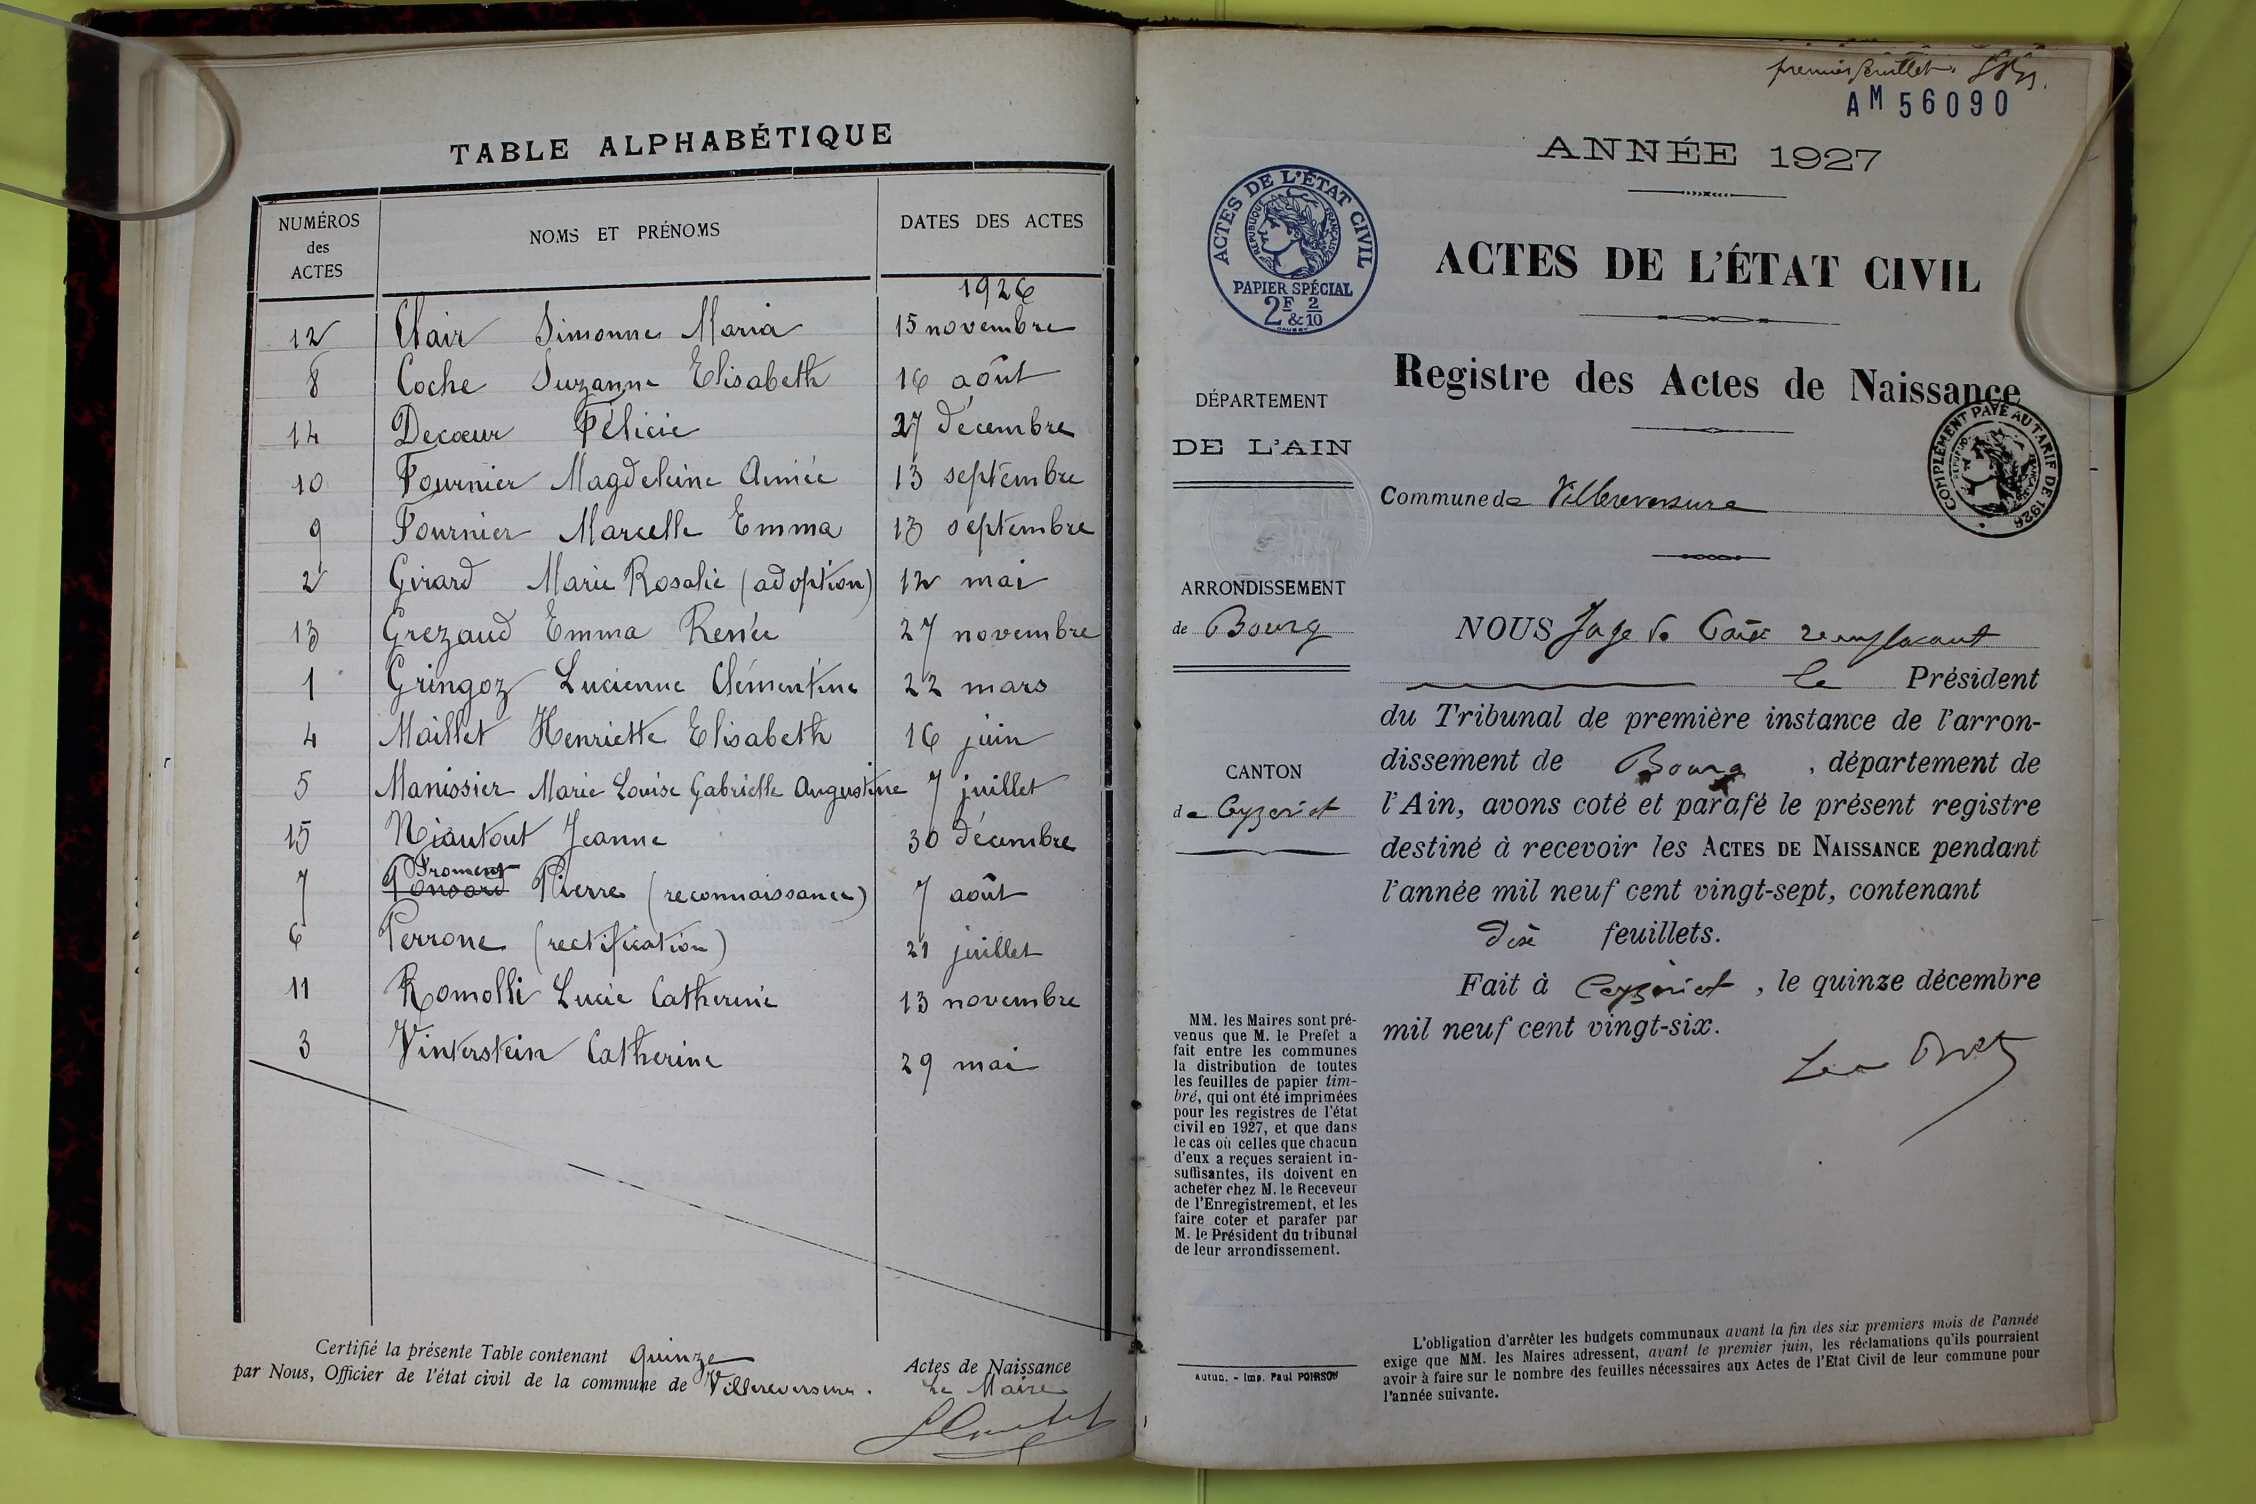 TABLE ALPHABÉTIQUE
NUMÉROS des ACTES NOMS ET PRÉNOMS DATES DES ACTES
1926
12 Clair Simonne Maria 15 novembre
8 Coche Suzanne Elisabeth 16 août
14 Decœur Félicie 27 décembre
10 Fournier Magdeleine Aimée 13 septembre
9 Fournier Marcelle Emma 13 septembre
2 Girard Marie Rosalie (adoption) 12 mai
13 Grezaud Emma Renée 27 novembre
1 Gringoz Lucienne Clémentine 22 mars
4 Maillet Henriette Elisabeth 16 juin
5 Manissier Marie Louise Gabrielle Augustine 7 juillet
15 Niautout Jeanne 30 décembre
Froment
7 Ponsard Pierre (reconnaissance) 7 août
6 Perrone (rectification) 21 juillet
11 Romolli Lucie Catherine 13 novembre
3 Vinterstein Catherine 29 mai
Certifié la présente Table contenant quinze Actes de Naissance
par Nous, Officier de l'état civil de la commune de Villereversure.
Le Maire
premier feuillet.
AM 56090
ANNÉE 1927
ACTES DE L'ÉTAT CIVIL
RÉPUBLIQUE FRANÇAISE
PAPIER SPÉCIAL
2F & 2/10
ACTES DE L'ÉTAT CIVIL
Registre des Actes de Naissance
COMPLÉMENT PAYÉ AU TARIF DE 1926
DÉPARTEMENT
DE L'AIN
Commune de Villereversure
ARRONDISSEMENT
de Bourg
CANTON
de Ceyzériat
MM. les Maires sont pré-
venus que M. le Prefet a
fait entre les communes
la distribution de toutes
les feuilles de papier tim-
bré, qui ont été imprimées
pour les registres de l'état
civil en 1927, et que dans
le cas où celles que chacun
d'eux a reçues seraient in-
suffisantes, ils doivent en
acheter chez M. le Receveur
de l'Enregistrement, et les
faire coter et parafer par
M. le Président du tribunal
de leur arrondissement.
Autun. - Imp. Paul POIRSON
NOUS Juge de Paix remplaçant
le Président
du Tribunal de première instance de l'arron-
dissement de Bourg, département de
l'Ain, avons coté et parafé le présent registre
destiné à recevoir les ACTES DE NAISSANCE pendant
l'année mil neuf cent vingt-sept, contenant
dix feuillets.
Fait à Ceyzériat, le quinze décembre
mil neuf cent vingt-six.
L'obligation d'arrêter les budgets communaux avant la fin des six premiers mois de l'année
exige que MM. les Maires adressent, avant le premier juin, les réclamations qu'ils pourraient
avoir à faire sur le nombre des feuilles nécessaires aux Actes de l'Etat Civil de leur commune pour
l'année suivante.